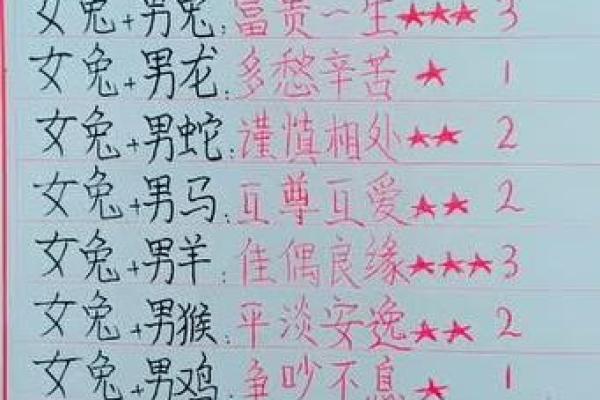 女兔+男兔:富贵一生★★★ 3
女兔+男龙:多愁辛苦 ★ 1
女兔+男蛇:谨慎相处★★ 2
女兔+男马:互尊互爱★★ 2
女兔+男羊:佳偶良缘★★★3
女兔+男猴:平淡安逸★★ 2
女兔+男鸡:争吵不息★ 1